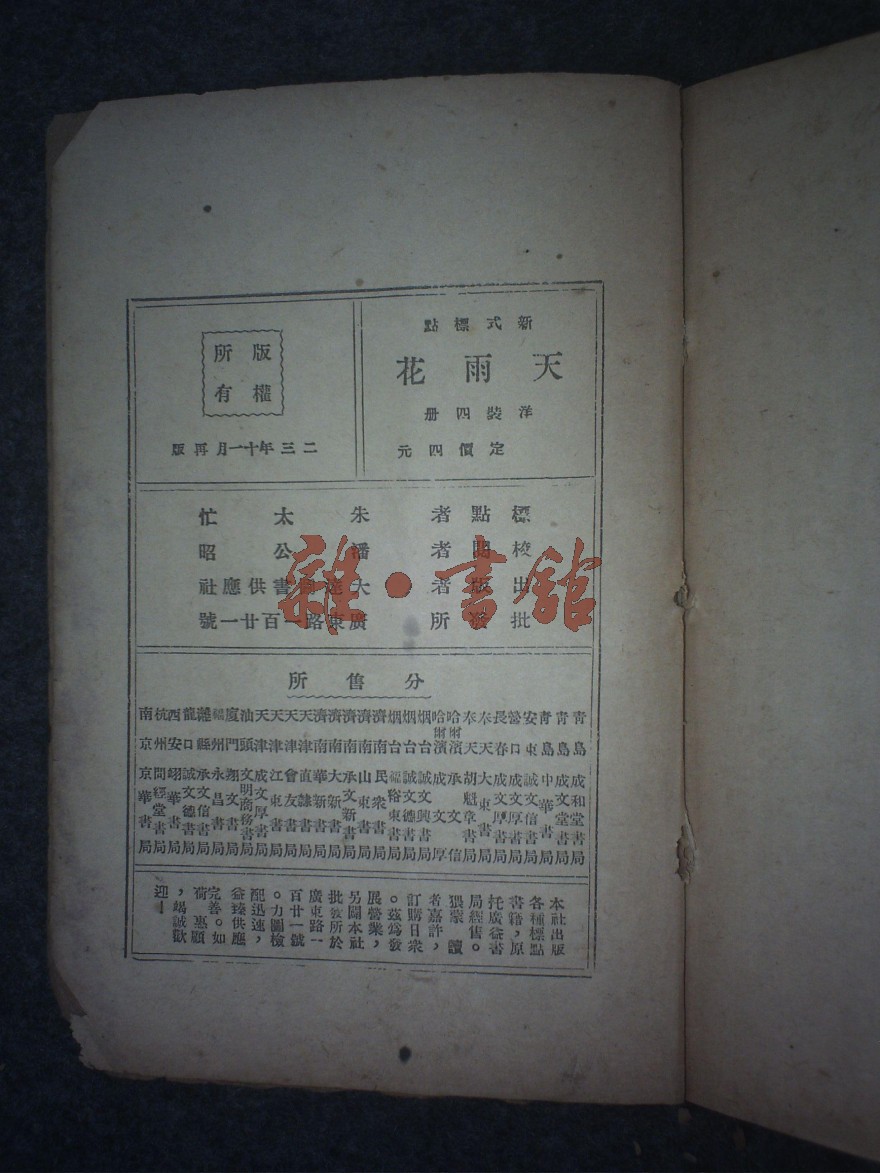 新式標點
天雨花
洋裝四册
定價四元
版權所有
二三年十一月再版
標點者 朱太忙
校閱者 潘公昭
出版者 大達圖書供應社
批發所 廣東路一百廿一號
雜·書館
分售所
青島 成和堂書局
青島 成文堂書局
青島 中華書局
安東 誠文信書局
營口 成文厚書局
長春 成文厚書局
奉天 大東書局
奉天 胡魁章書局
哈爾濱 承文信
哈爾濱 成文厚
烟台 誠文興書局
烟台 誠文德書局
烟台 福裕東書局
濟南 民衆書局
濟南 山東書局
濟南 承文新書局
濟南 大新書局
濟南 華新書局
天津 直隸書局
天津 會友書局
天津 江東書局
天津 成文厚書局
汕頭 文明商務書局
廈門 翔文書局
福州 永昌書局
濰縣 承文信書局
龍口 誠文德書局
西安 翊華書局
杭州 問經堂書局
南京 京華書局
本社出版
各種標點
書籍，原
托廣益書
局經售。
猥蒙 讀
者嘉許，
訂購日衆
。茲爲發
展營業，
另闢本社
批發所於
廣東路一
百廿一號
。力圖檢
配迅速，
益臻供應
完善。如
荷 惠顧
，竭誠歡
迎！